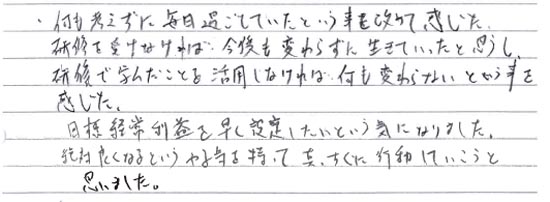 ・何も考えずに毎日過ごしていたという事を改めて感じた。
研修を受けなければ、今後も変わらずに生きていったと思うし、
研修で学んだことを活用しなければ何も変わらないという事を
感じた。
目標経常利益を早く設定したいという気になりました。
絶対良くなるというやる気を持って真っすぐに行動していこうと
思いました。